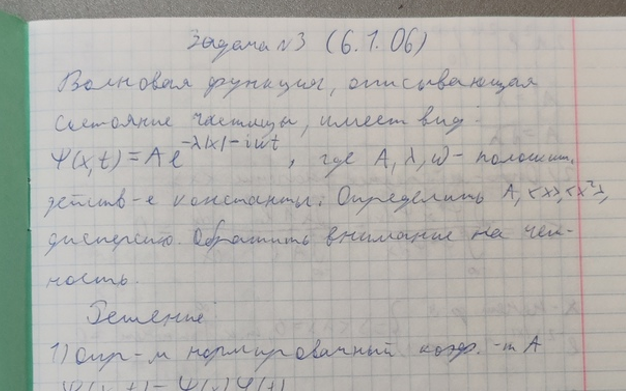 Задача №3 (6.1.06)
Волновая функция, описывающая
состояние частицы, имеет вид:
Ψ(x,t) = A e^{-λ|x| - iωt}, где A, λ, ω - полошит.
действ-е константы. Определить A, <x>, <x²>,
дисперсию. Обратить внимание на чет-
ность.
Решение
1) опр-м нормировачный коэф.-т A
Ψ(x,t) = Ψ(x)Ψ(t)